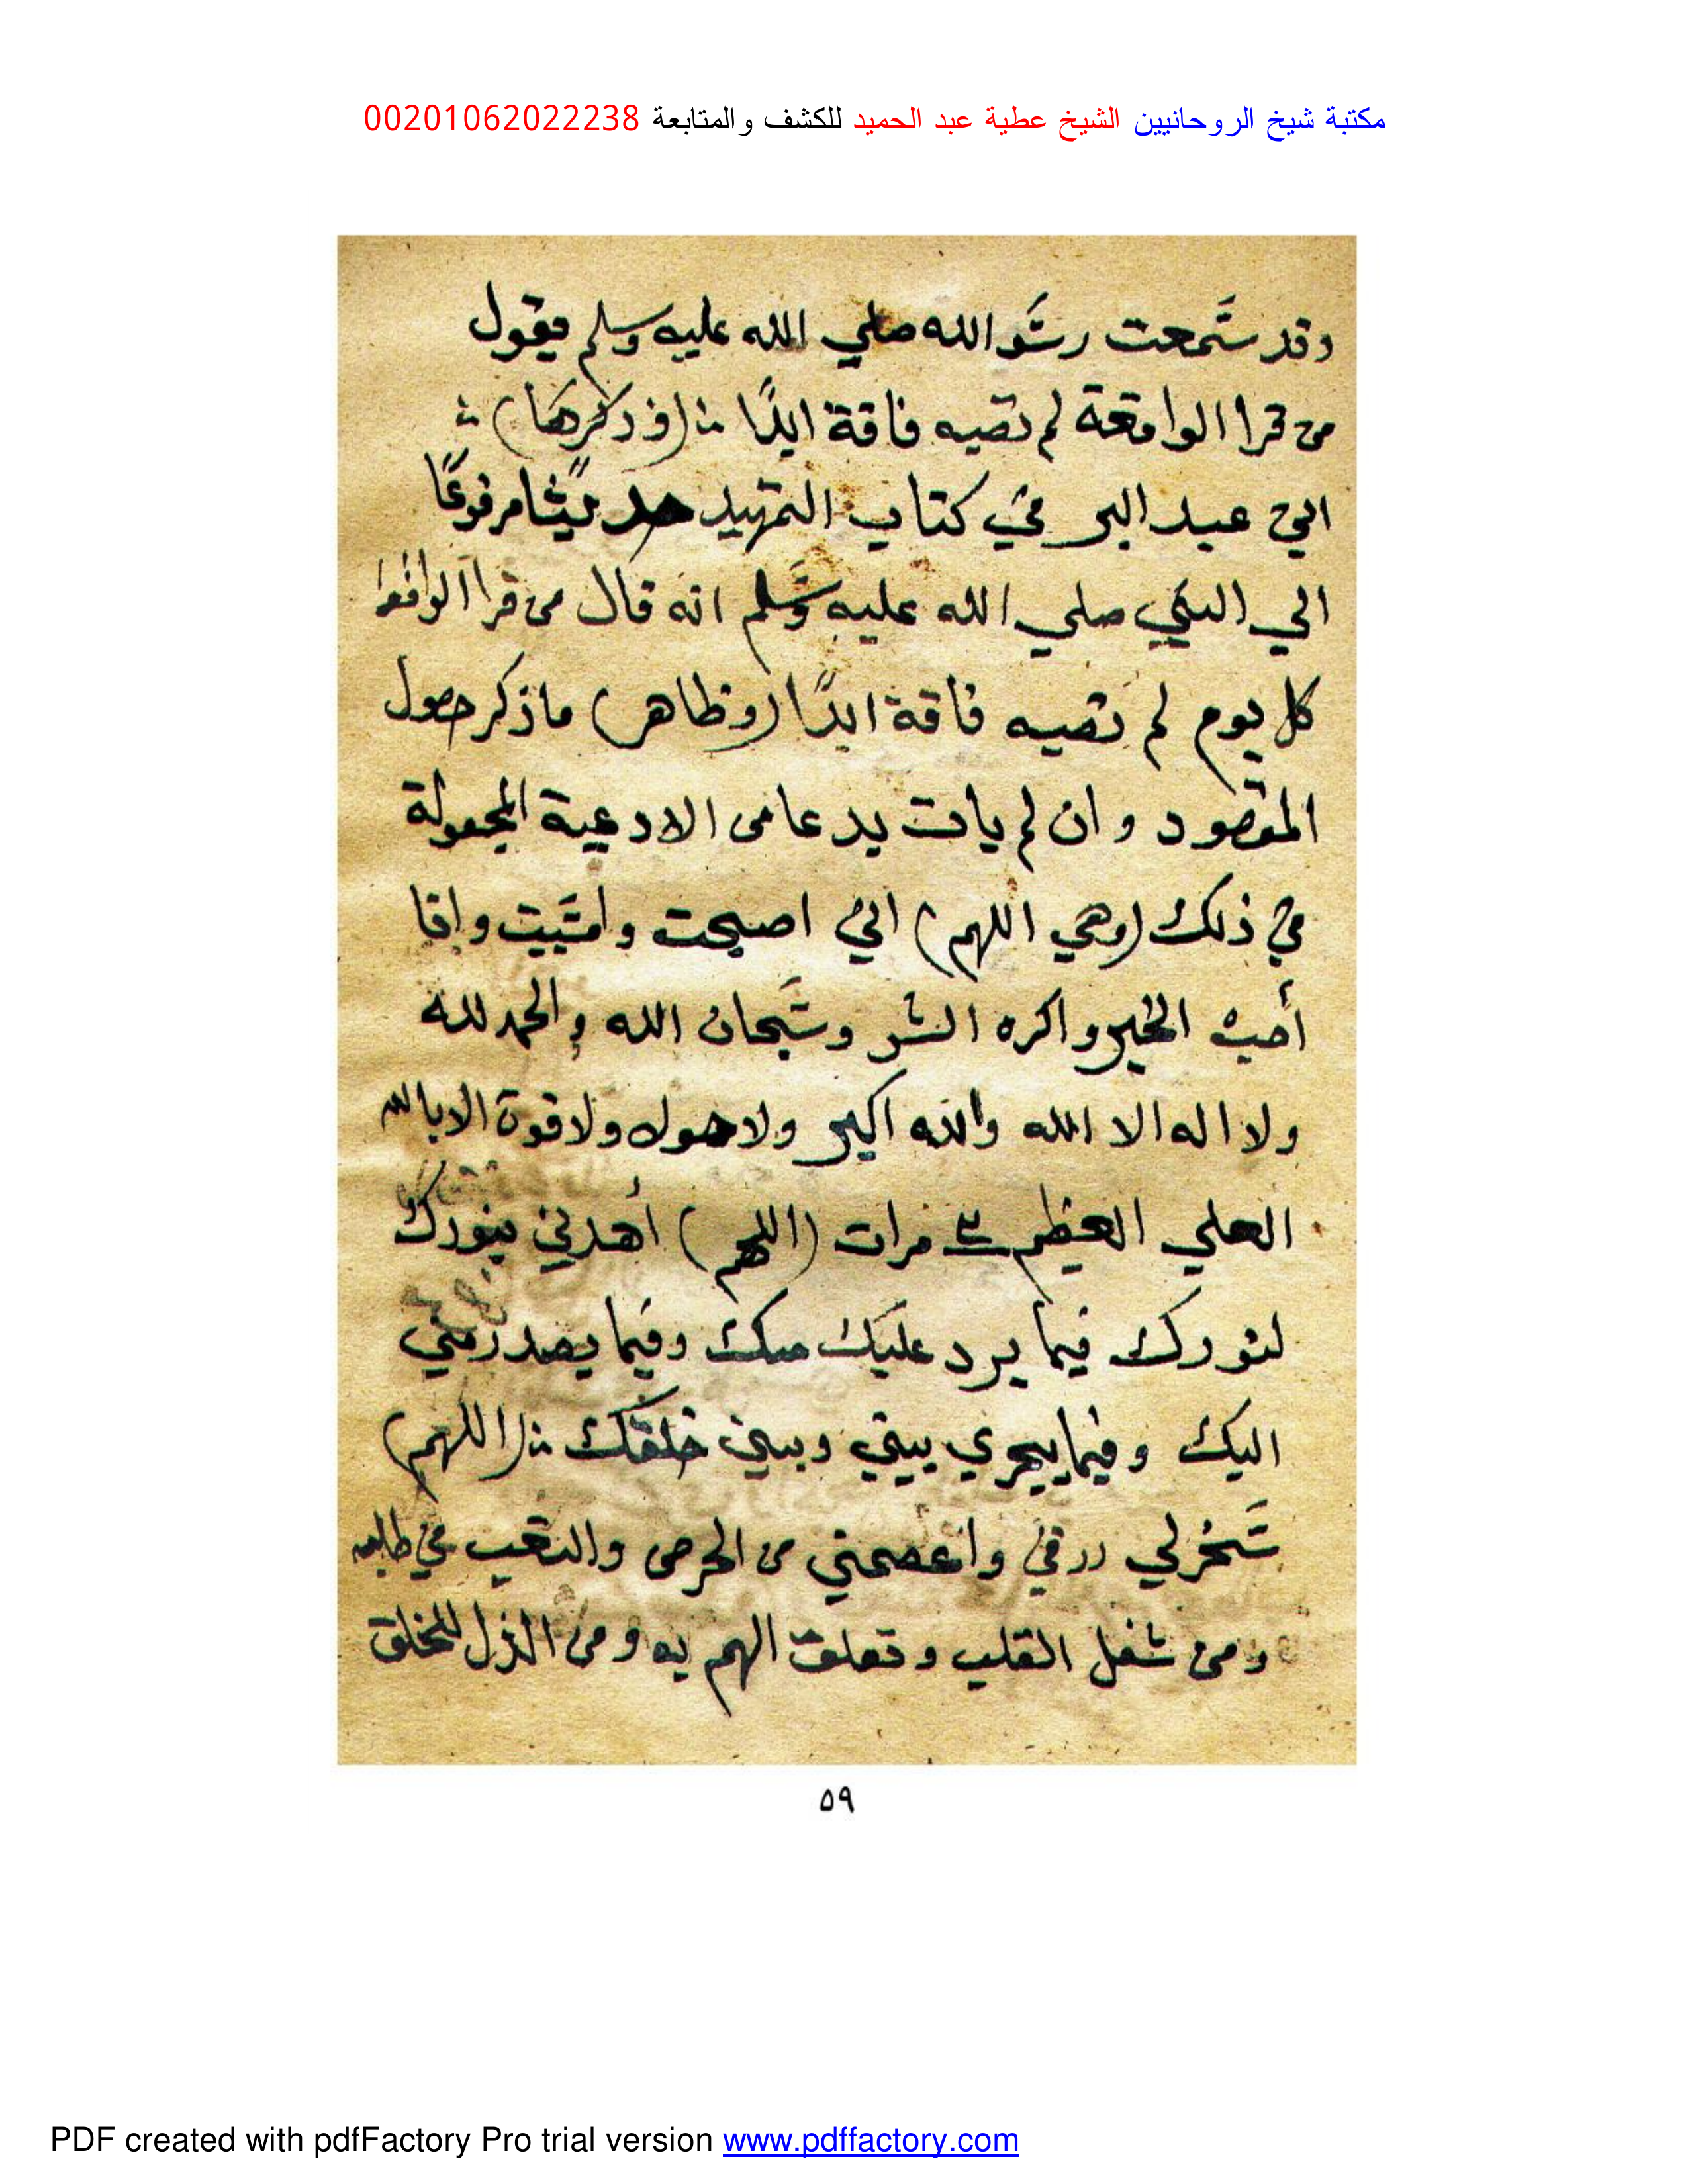 مكتبة شيخ الروحانيين الشيخ عطية عبد الحميد للكشف والمتابعة 00201062022238
وقد سَمعت رسَو الله صلي الله عليه وسلم يقول
من قرا الواقعة لم تصبه فاقة ابدًا (وذكرها)
ابن عبد البر في كتاب التمهيد حديثًا مرفوعًا
الي النبي صلي الله عليه وسَلم انه قال من قرا الواقعة
كل يوم لم تصبه فاقة ابدًا (وظاهر) ماذكر حصول
المقصود وان لم يات بدعا من الادعية المجعولة
في ذلك (وهي اللهم) اني اصبحت وامسَيت وانا
أحب الخير واكره الشر وسَبحان الله والحمد لله
ولا اله الا الله والله اكبر ولا حول ولا قوة الا بالله
العلي العظيم مرات (اللهم) أهدني بنورك
لنورك فيما يرد عليك منك وفيما يصدر مني
اليك وفيما يجري بيني وبين خلقك (اللهم)
سَخر لي رزقي واعصمني من الحرص والتعب في طلبه
ومن شغل القلب وتعلق الهم به ومن الذل للخلق
٥٩
PDF created with pdfFactory Pro trial version www.pdffactory.com